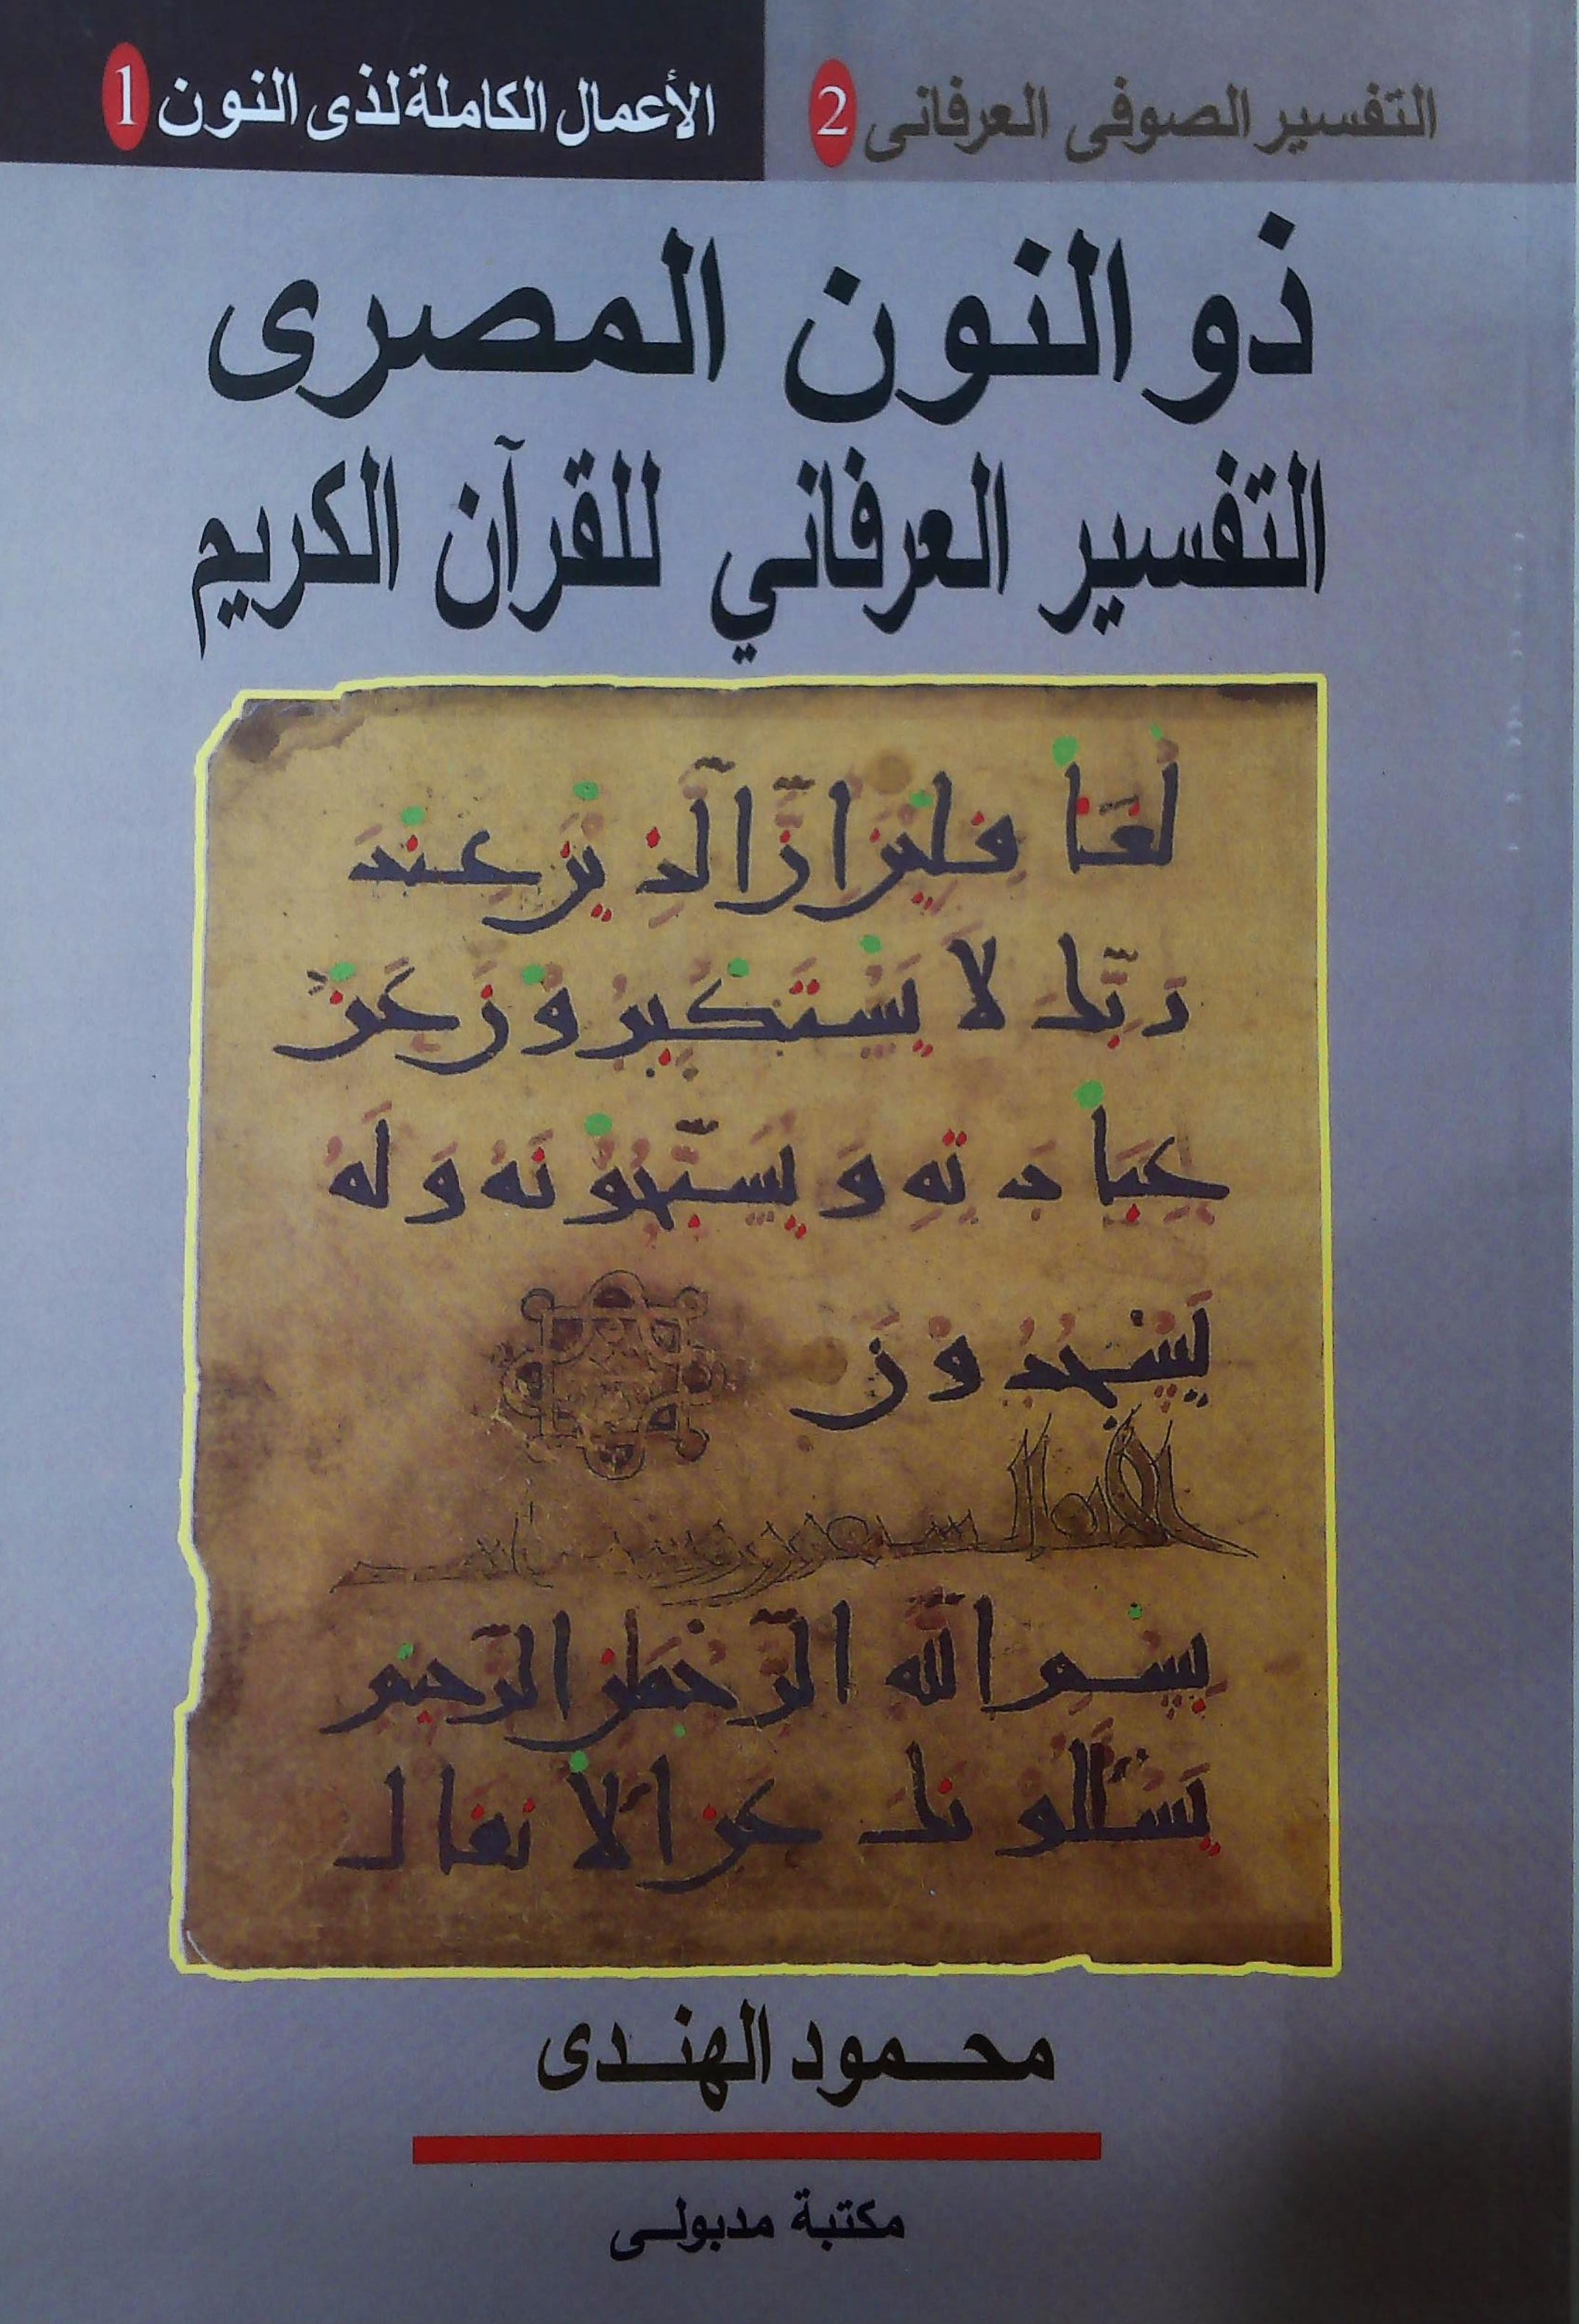 التفسير الصوفى العرفانى 2
الأعمال الكاملة لذى النون 1
ذو النون المصرى
التفسير العرفاني للقرآن الكريم
لغفلين إن الذين عند
ربك لا يستكبرون عن
عبادته ويسبحونه وله
يسجدون
بسم الله الرحمن الرحيم
يسألونك عن الأنفال
محمود الهندى
مكتبة مدبولى